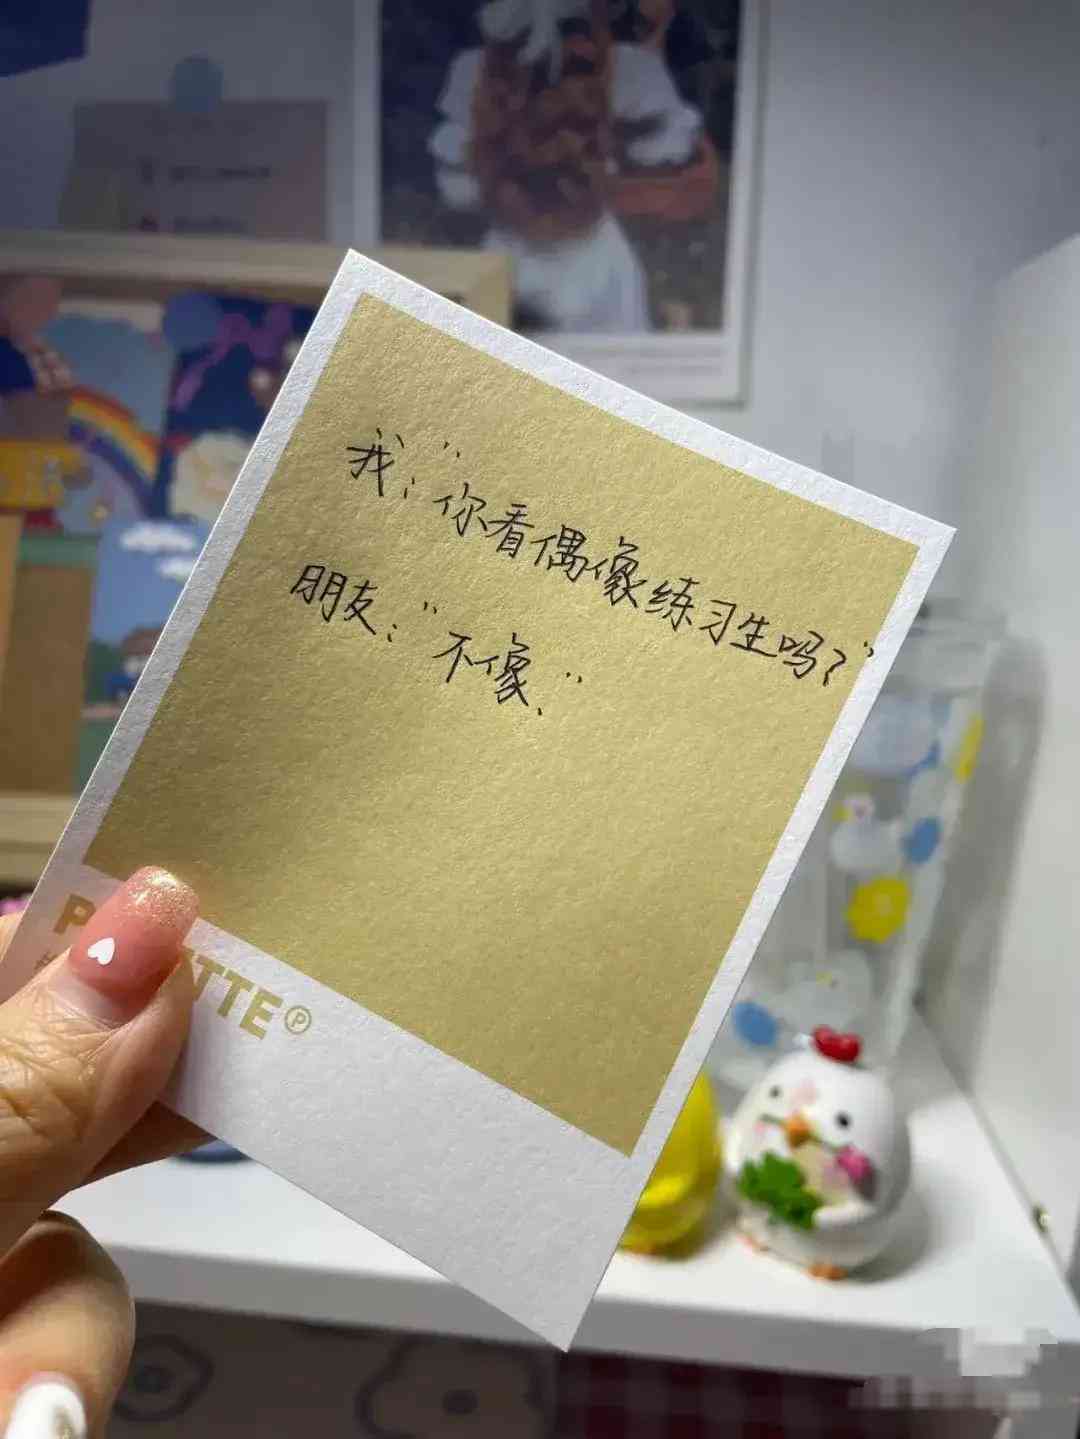 我："你看偶像练习生吗？"
朋友："不像."
TTE℗